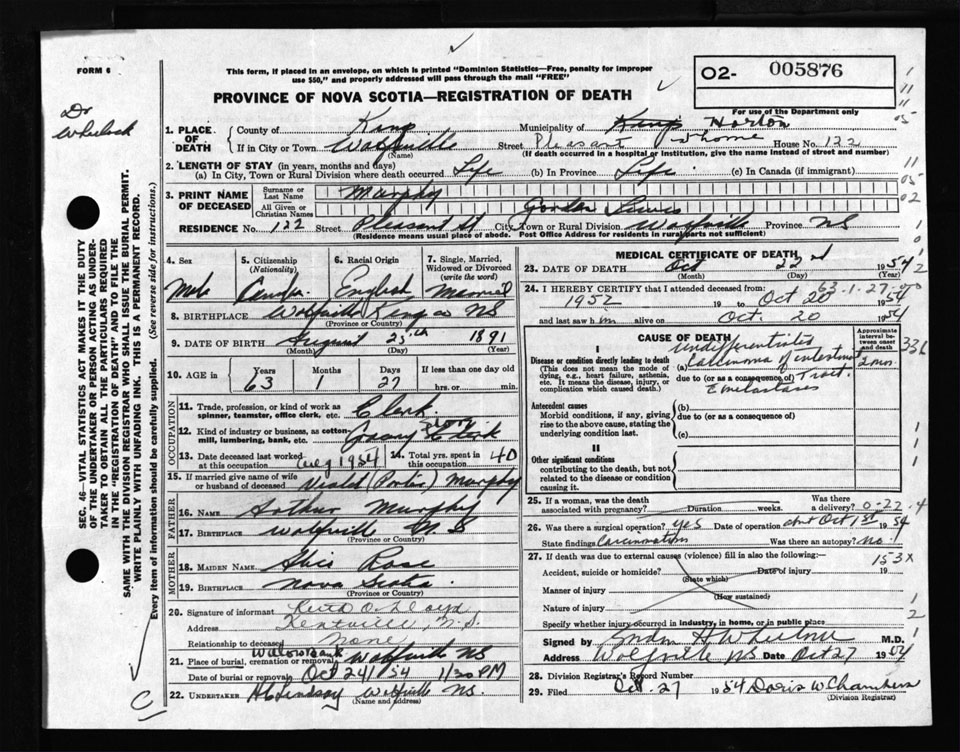 FORM 6
This form, if placed in an envelope, on which is printed "Dominion Statistics—Free, penalty for improper
use $50," and properly addressed will pass through the mail "FREE"
02- 005876
For use of the Department only
PROVINCE OF NOVA SCOTIA—REGISTRATION OF DEATH
Dr
Wheelock
1. PLACE OF DEATH
County of Kings Municipality of Kings Horton
If in City or Town Wolfville Street Pleasant St home House No. 122
(Name) (If death occurred in a hospital or institution, give the name instead of street and number)
2. LENGTH OF STAY (in years, months and days)
(a) In City, Town or Rural Division where death occurred Life (b) In Province Life (c) In Canada (if immigrant)
3. PRINT NAME OF DECEASED
Surname or Last Name Murphy
All Given or Christian Names Gordon Lewis
RESIDENCE No. 122 Street Pleasant St City, Town or Rural Division Wolfville Province NS
(Residence means usual place of abode. Post Office Address for residents in rural parts not sufficient)
4. Sex Male
5. Citizenship (Nationality)
6. Racial Origin English
7. Single, Married, Widowed or Divorced (write the word) Married
8. BIRTHPLACE Wolfville Kings Co NS
(Province or Country)
9. DATE OF BIRTH August 25th 1891
(Month) (Day) (Year)
10. AGE Years 63 Months 1 Days 27 If less than one day old hrs. or min.
OCCUPATION
11. Trade, profession, or kind of work as spinner, teamster, office clerk, etc. Clerk
12. Kind of industry or business, as cotton-mill, lumbering, bank, etc. Store
13. Date deceased last worked at this occupation Aug 1954
14. Total yrs. spent in this occupation 40
15. If married give name of wife or husband of deceased Violet (Porter) Murphy
FATHER
16. NAME Arthur Murphy
17. BIRTHPLACE Wolfville N.S
(Province or Country)
MOTHER
18. MAIDEN NAME Rose
19. BIRTHPLACE Nova Scotia
(Province or Country)
20. Signature of informant Keith O. Lloyd
Address Kentville, N.S.
Relationship to deceased None
21. Place of burial, cremation or removal Willowbank Wolfville NS
Date of burial or removal Oct 24/54 1/30 PM
22. UNDERTAKER H C Lindsay Wolfville NS.
(Name and address)
SEC. 46—VITAL STATISTICS ACT MAKES IT THE DUTY
OF THE UNDERTAKER OR PERSON ACTING AS UNDER-
TAKER TO OBTAIN ALL THE PARTICULARS REQUIRED
IN THE "REGISTRATION OF DEATH" AND TO FILE THE
SAME WITH THE DIVISION REGISTRAR WHO SHALL ISSUE THE BURIAL PERMIT.
WRITE PLAINLY WITH UNFADING INK. THIS IS A PERMANENT RECORD.
Every item of information should be carefully supplied. (See reverse side for instructions.)
C
MEDICAL CERTIFICATE OF DEATH
23. DATE OF DEATH Oct 22nd 1954
(Month) (Day)
24. I HEREBY CERTIFY that I attended deceased from: 63-1-27-
1952 19 to Oct 20 1954
and last saw him alive on Oct. 20 1954
CAUSE OF DEATH
Approximate interval between onset and death
I
Disease or condition directly leading to death
(This does not mean the mode of dying, e.g., heart failure, asthenia, etc. It means the disease, injury, or complication which caused death.)
(a) Undifferentiated Carcinoma of intestinal Tract 2 mos.
due to (or as a consequence of)
Antecedent causes
Morbid conditions, if any, giving rise to the above cause, stating the underlying condition last.
(b)
due to (or as a consequence of)
(c)
II
Other significant conditions
contributing to the death, but not related to the disease or condition causing it.
25. If a woman, was the death associated with pregnancy? Duration weeks. Was there a delivery? 0-22-4
26. Was there a surgical operation? yes Date of operation abt Oct 1st 1954
State findings Carcinomatosis Was there an autopsy? no
27. If death was due to external causes (violence) fill in also the following:— 153X
Accident, suicide or homicide? Date of injury 19
(State which)
Manner of injury
(How sustained)
Nature of injury
Specify whether injury occurred in industry, in home, or in public place
Signed by Gordon H Wheelock M.D.
Address Wolfville NS Date Oct 27 1954
28. Division Registrar's Record Number
29. Filed Oct. 27 1954 Doris W Chambers
(Division Registrar)